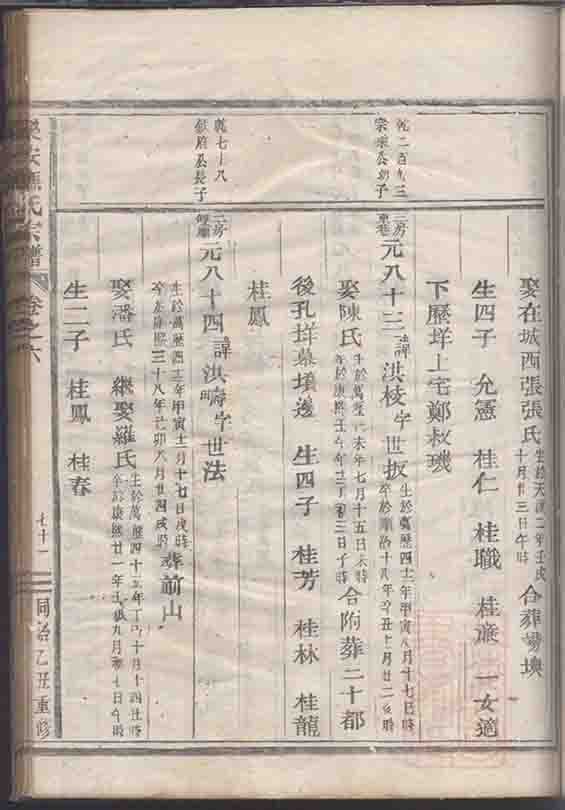 娶在城西張張氏生於天啟二年壬戌十月廿三日午時合葬
生四子 允憲 桂仁 桂職 桂 一女適
下歷垟上宅鄭叔璣
宗 公 子
三房 元八十三諱洪棱字世扳生於萬歷四十二年甲寅八月十七日 時卒於順治十八年辛丑七月廿二 時
娶陳氏生於萬歷 未年七月十五日 時卒於康熙壬午年 三日子時合附葬二十都
後孔垟墓壙邊 生四子 桂芳 桂林 桂龍
桂鳳
乾七十八
公長子
二房 元八十四諱洪疇字世法
生於萬歷四十二年甲寅十一月十七日戌時卒於康熙三十八年己卯八月廿四 時葬前山
娶潘氏 繼娶羅氏生於萬歷四十五年丁巳十月十四 時卒於康熙廿一年壬戌九月初七日午時
生二子 桂鳳 桂春
樂安 氏宗譜 卷之六 七十一 同治乙丑重修